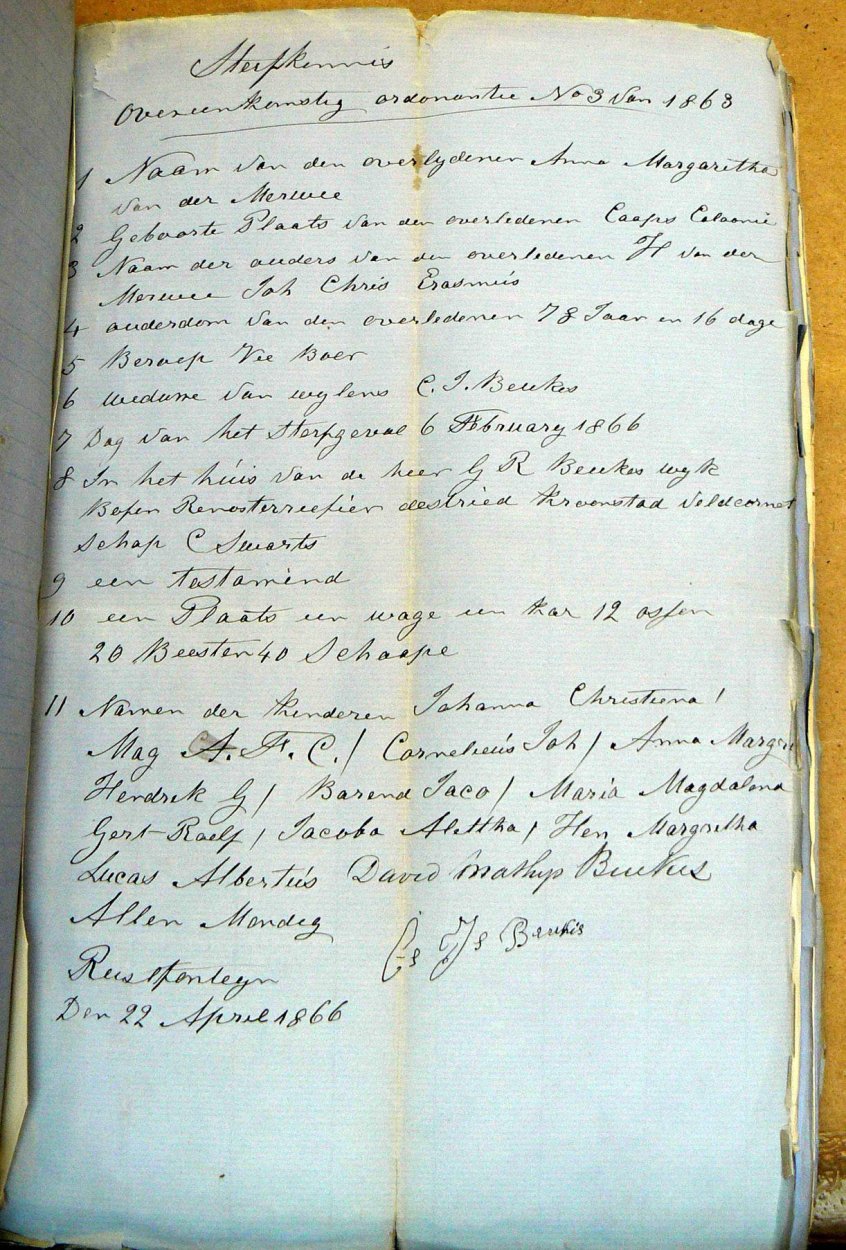 Sterfkennis
Overeenkomstig ordonantie No 3 van 1863
1 Naam van den overlydenen Anna Margaretha
van der Merwe
2 Geboorte Plaats van den overledenen Caaps Coloonie
3 Naam der ouders van den overledenen H van der
Merwe Joh Chris Erasmus
4 ouderdom van den overledenen 78 Jaar en 16 dage
5 Beroep Vee Boer
6 weduwe van wylens C. J. Beukes
7 Dag van het Sterfgeval 6 February 1866
8 In het huis van de heer G R Beukes wyk
Bofen Renosterriefier destried Kroonstad Veldcornet
Schap C Swarts
9 een testamend
10 een Plaats een wage een kar 12 ossen
20 Beesten 40 Schaape
11 Namen der kinderen Johanna Christiena /
Mag A. F. C. / Cornelieus Joh / Anna Margre
Hendrik G / Barend Jaco / Maria Magdalena
Gert Roelf / Jacoba Alettha / Hen Margretha
Lucas Albertus David Beukes
Allen Mondig
Rustfonteyn
Den 22 April 1866